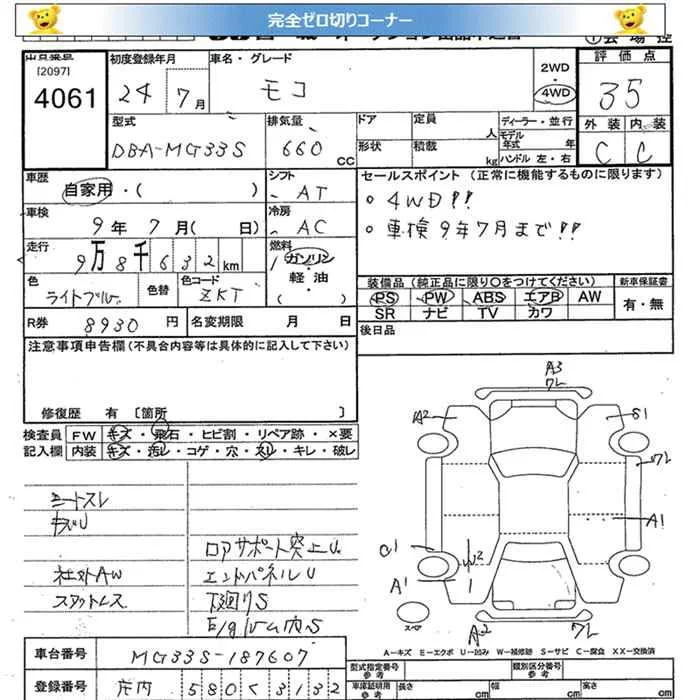 完全ゼロ切りコーナー
出品番号
[2097]
4061
初度登録年月
24 7月
車名・グレード
モコ
2WD
・
4WD
評価点
35
外装 内装
C C
型式
DBA-MG33S
排気量
660 CC
ドア
定員 人
形状
積載 kg
ディーラー・並行
モデル年式 年
ハンドル 左・右
車歴
自家用・( )
シフト
AT
車検
9年 7月( 日)
冷房
AC
走行
9万8千632km
燃料
ガソリン
・
軽油
( )
色
ライトブルー
色替
色コード
ZKT
R券 8930円
名変期限 月 日
セールスポイント (正常に機能するものに限ります)
○ 4WD!!
○ 車検9年7月まで!!
装備品(純正品に限り○をつけてください)
新車保証書
PS PW ABS エアB AW
SR ナビ TV カワ
有・無
後日品
注意事項申告欄(不具合内容等は具体的に記入して下さい)
修復歴 有 〔箇所 〕
検査員記入欄
FW キズ・飛石・ヒビ割・リペア跡・×要
内装 キズ・汚レ・コゲ・穴・スレ・キレ・破レ
シートスレ
キズU
社外AW
スタットレス
ロアサポート突上U
エンドパネルU
下廻りS
E/gルーム内S
A3
ワレ
A2
S1
ワレ
A1
A1
スペア
A2
ワレ
A-キズ E-エクボ U-凹み W-補修跡 S-サビ C-腐食 XX-交換済
車台番号
MG33S-187607
登録番号
庄内 580く3132
型式指定番号
参考
類別区分番号
参考
車庫証明用
参考
長さ cm
幅 cm
高さ cm